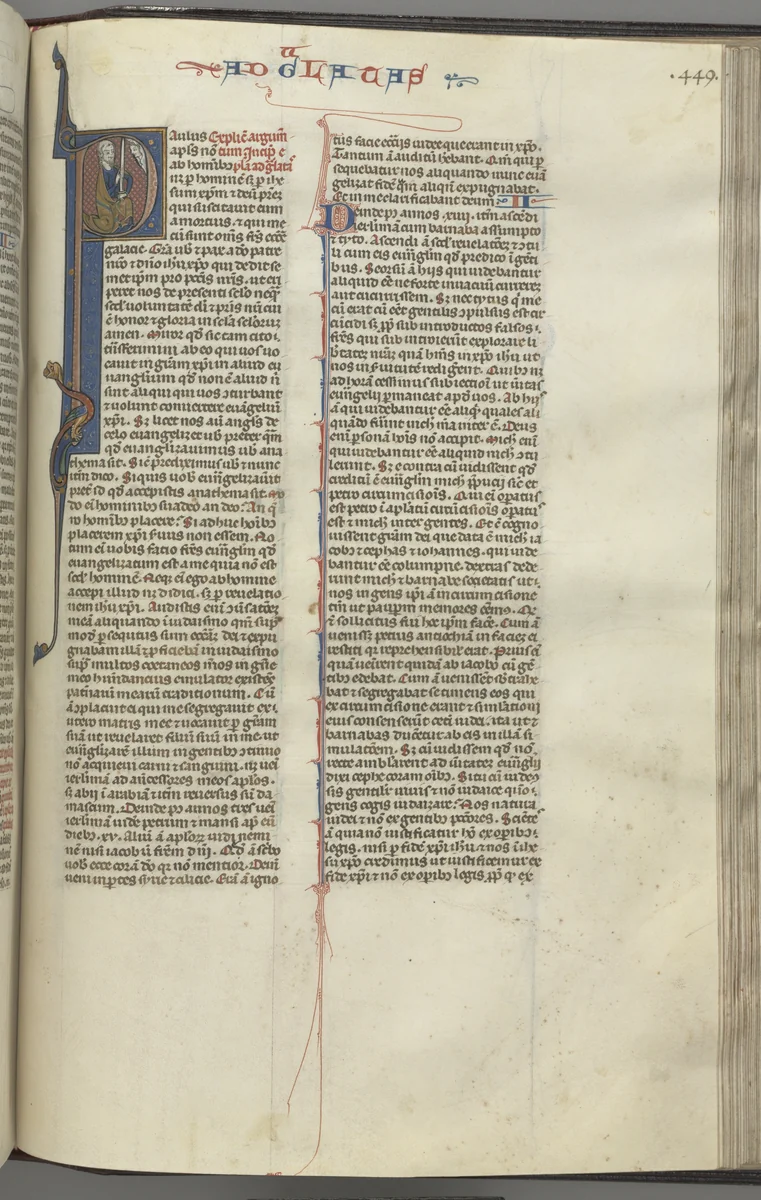 AD GALATAS
.449.
Aulus Explic̄ argum̄
apl̓s nō tum Incip̄ e
ab hom̄ibꝰ pl̄a ad glatā
nꝫ p hominē sꝫ p ihe
sum xp̄m ⁊ deū prēz
qui suscitauit eum
a mortuis. ⁊ qui me
cū sunt om̄s frēs eccē
galacie. Gr̄a uob̓ ⁊ pax a do patre
nr̄o ⁊ dn̄o ih̓u xp̄o qui dedit se
metip̄m pro pcc̄is nr̄is. ut eri
peret nos de presenti sclo neq̄
scd̓ uoluntatē dī ⁊ pris nr̄i cui
ē honor ⁊ gloria in scl̄a scl̄oruꝫ
amen. Miror qd̓ sic tam cito .
tn̄sferimini ab eo qui uos uo
cauit in gr̄am xp̄i in aliud eu
uangl̄ium qd̓ non ē aliud n̄
sunt aliqui qui uos ɔturbant
⁊ uolunt conuertere euāgeliū
xp̄i. Sꝫ licet nos aut angl̄s de
celo euangelizet uob̓ preter qm̄
qd̓ euangl̄izauimus uob̓ ana
thema sit. Sic̄ prediximus ⁊ nunc
itm̄ dico. Si quis uob̓ euu̅gelizauit
pret̓ id qd̓ accepistis anathema sit. mo
do eī hominibꝰ suadeo an deo? An q̄
ro homībꝰ placere? Si adhuc hoībꝰ
placerem xp̄i s̓uus non essem. No
tum eī uobis facio frēs euu̅glm̄ qd̓
euangelizatum est a me quia nō est
scd̓ hominē. Neqꝫ eī ego ab homine
accepi illud nꝫ didici. sꝫ p reuelatio
nem ih̓u xp̄i. Audistis enī ɔuersatōez
meā aliquando ī iudaismo qm̄ sup̄
mod̓ p sequebar eccaꝫ dei ⁊ expu
gnabam illā ⁊ p ficiebā in iudaismo
sup̄ multos coetaneos m̄os in gn̄e
meo habundancius emulator existēs
pat̓naꝝ mearū traditionum. Cū
aūt placuit ei qui me segregauit ex .
utero matris mee ⁊ uocauit p gr̄am
suā ut reuelaret filiū suū in me. ut
euu̅glizarē illum in gentibꝰ ɔtinuo
nō acquieui carni ⁊ sanguini. nꝫ ueī
ierl̄mā ad aūcessores meos apl̓os.
sꝫ abii ī arabiā ⁊ itm̄ reuersus sū da
mascum. Deinde pꝰ annos tres ueī
ierl̄imā uide petrum ⁊ mansi ap̓ eū
diebꝰ. xv. Aliū ā apl̓orꝫ uidi nemi
nē nisi iacobū frēm dn̄i. Que ā scribo
uob̓ ecce corā do qr̄ nō mentior. Dein̄
ueni in p̄tes syrie ⁊ cilicie. Erā ā igno
tus facie ecc̄iis iudee que erant in xp̄o.
Tantum ā auditū h̓ebant. Qm̄ qui p
sequebatur nos aliquando nunc euā
gelizat fidē quā aliqn̄ expugnabat.
Et in me clarificabant deum. II
Deinde pꝰ annos . xiiii . itm̄ ascēdi
ierl̄imā cum barnaba assumpto
⁊ tyto. Ascendi ā scd̓ reuelatōeꝫ ⁊ ɔtu
li cum eis euu̅glm̄ qd̓ predico ī gēti
bus. Seorsū ā hijs qui uidebantur
aliquid eē ne forte inuacuū currerez
aut cucurrissem. Sꝫ nec tytus q̓ me
cū erat cū eēt gentilis ɔpulsus est cir
cūcidi sꝫ pp̄ sub introductos falsos .
frēs qui sub introierūt explorare li
b̓tatez nrāꝫ quā h̄m̄s in xp̄o ih̓u ut
nos in s̓uitutē redigerēt. Quibꝰ nꝫ
ad horā cessimus subiectioī ut u̓itas
euu̅gelij p maneat apd̓ uos. Ab hijs
ā qui uidebantur eē aliq̓ quales ali
quādo fūint nich̓ mā inter ē. Deus
enī p sonā hoīs nō accipit. Mich̓ enī
qui uidebantur eē aliquid nich̓ ɔtu
lerunt. Sꝫ e contra cū uidissent qd̓
creditū ē euu̅glm̄ mich̓ p̄pucij sic̄ ⁊
petro circumcisiois. Qui eī opatus
est petro ī apl̄atū circūcisiois opatꝰ
est ⁊ mich̓ inter gentes. Et c̄ cogno
uissent gr̄am dei que data ē mich̓ ia
cobꝰ ⁊ cephas ⁊ iohannes. qui uide
bantur eē columpne. dextras dede
runt mich̓ ⁊ barnabe societatis ut .
nos in gens ip̄i ā in circumcisione
tm̄ ut paupm̄ memores eēmꝰ. Qd̓
ā sollicitus fui hoc ip̄m facē. Cum ā
uenissꝫ petrus antiochiā in faciez ei
restiti qr̄ reprehensibil̓ erat. Prius eī
quā uenirent quidā ab iacobo cū gē
tibꝰ edebat. Cum ā uenissent sb̓trahe
bat ⁊ segregabat se timens eos qui
ex circumcisione erant ⁊ simulationi
eius consenserūt ceteri iudei. ita ut ⁊
barnabas duceretur ab eis in illā si
mulatōem. Sꝫ cū uidissem qd̓ nō
recte ambularent ad u̓itatez euu̅glij
dixi cephe coram oībꝰ. Si tu cū iudeꝰ
sis gentil̓r uiuis ⁊ non iudaice quo .
gens cogis iudaizare? Nos natura
iudei ⁊ nō ex gentibꝰ pccōres. Sciētes
ā quia nō iustificatur hō ex opibꝰ .
legis. nisi p fidē xp̄i ih̓u ⁊ nos ī ihe
su xp̄o credimus ut iustificemur ex
fide xp̄i ⁊ nō ex opibꝰ legis. pp̄ qd̓ ex